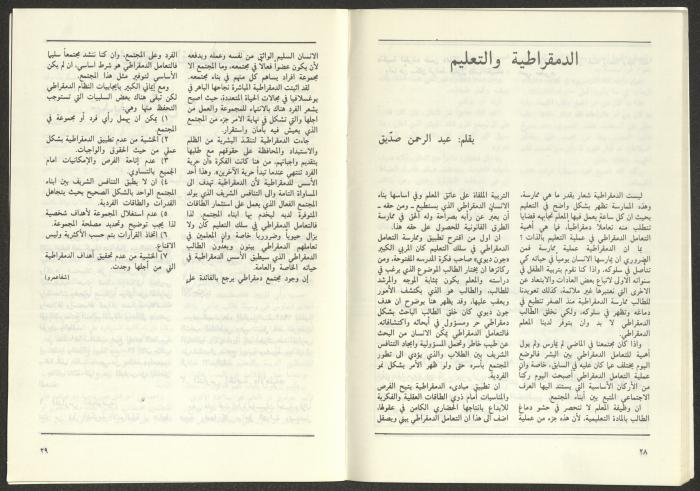 الدمقراطية والتعليم
بقلم: عبد الرحمن صدّيق
ليست الدمقراطية شعار بقدر ما هي ممارسة،
وهذه الممارسة تظهر بشكل واضح في التعليم
بحيث ان كل ساعة يعمل فيها المعلم يجابهه قضايا
تتطلب منه تعاملاً دمقراطياً، فما هي أهمية
التعامل الدمقراطي في عملية التعليم بالذات ؟
بما ان الدمقراطية عملية ممارسة فمن
الضروري ان يمارسها الانسان يومياً في حياته كي
تتأصل في سلوكه، واذا كنا نقوم بتربية الطفل في
سنواته الاولى لاتباع بعض العادات والابتعاد عن
الاخرى التي نعتبرها غير ملائمة، كذلك تعويدنا
للطالب ممارسة الدمقراطية منذ الصغر تنطبع في
دماغه وتظهر في سلوكه، ولكي نخلق الطالب
الدمقراطي لا بد وان يتوفر لدينا المعلم
الدمقراطي.
واذا كان مجتمعنا في الماضي لم يمارس ولم يول
أهمية للتعامل الدمقراطي بين البشر فالوضع
اليوم يختلف عما كان عليه في السابق، خاصة وان
عملية التعامل الدمقراطي أصبحت اليوم ركنا
من الأركان الأساسية التي يستند اليها العرف
الاجتماعي المتبع بين أبناء المجتمع.
ان وظيفة المعلم لا تنحصر في حشو دماغ
الطالب بالمادة التعليمية، لأن هذه جزء من عملية
التربية الملقاة على عاتق المعلم وفي اساسها بناء
الانسان الدمقراطي الذي يستطيع ـ ومن حقه ـ
أن يعبر عن رأيه بصراحة وله الحق في ممارسة
الطرق القانونية للحصول على حقه هذا.
ان اول من اقترح تطبيق وممارسة التعامل
الدمقراطي في سلك التعليم كان المربي الكبير
«جون ديوي» صاحب فكرة المدرسة المفتوحة، ومن
ركائزها ان يختار الطالب الموضوع الذي يرغب في
دراسته والمعلم يكون بمثابة الموجه والمرشد
للطالب، والطالب هو الذي يكتشف الأمور
ويعقب عليها، وقد يظهر هنا بوضوح ان هدف
جون ديوي كان خلق الطالب الباحث بشكل
دمقراطي حر ومسؤول في أبحاثه واكتشافاته.
فالتعامل الدمقراطي يمكن الانسان من البحث
عن طيب خاطر وتحمل المسؤولية وايجاد التنافس
الشريف بين الطلاب والذي يؤدي الى تطور
المجتمع بأسره حتى ولو ظهر الأمر بشكل نمو
الفردية.
ان تطبيق مبادىء الدمقراطية يتيح الفرص
والمناسبات أمام ذوي الطاقات العقلية والفكرية
للابداع بانتاجها الحضاري الكامن في عقولها،
اضف الى هذا ان التعامل الدمقراطي يبني ويصقل
٢٨
الانسان السليم الواثق من نفسه وعمله ويدفعه
لأن يكون عضواً فعالاً في مجتمعه، وما المجتمع الا
مجموعة افراد يساهم كل منهم في بناء مجتمعه.
لقد اثبتت الدمقراطية المباشرة نجاحها الباهر في
يوغسلافيا في مجالات الحياة المتعددة، حيث اصبح
يشعر الفرد هناك بالانتماء للمجموعة والعمل من
اجلها والتي تشكل في نهاية الامر جزء من المجتمع
الذي يعيش فيه بأمان واستقرار.
جاءت الدمقراطية لتنقذ البشرية من الظلم
والاستبداد والمحافظة على حقوقهم مع طلبها
بتقديم واجباتهم، من هنا كانت الفكرة «أن حرية
الفرد تنتهي عندما تبدأ حرية الآخرين»، وهذا أحد
الأسس للدمقراطية لأن الدمقراطية تهدف الى
المساواة التامة والى التنافس الشريف الذي يولد
المجتمع الفعال الذي يعمل على استثمار الطاقات
المتوفرة لديه ليخدم بها ابناء المجتمع. لذا
فالتعامل الدمقراطي في سلك التعليم كان ولا
يزال حيوياً وضرورياً خاصة وان المعلمين في
تعاملهم الدمقراطي يبنون ويعدون الطالب
الدمقراطي الذي سيطبق الأسس الدمقراطية في
حياته الخاصة والعامة.
إن وجود مجتمع دمقراطي يرجع بالفائدة على
الفرد وعلى المجتمع، وان كنا ننشد مجتمعاً سليما
فالتعامل الدمقراطي هو شرط اساسي، ان لم يكن
الأساسي لتوفير مثل هذا المجتمع.
ومع إيماني الكبير بايجابيات النظام الدمقراطي
لكن تبقى هناك بعض السلبيات التي تستوجب
التحفظ منها وهي:
١) يمكن ان يهمل رأي فرد أو مجموعة في
المجتمع
٢) الخشية من عدم تطبيق الدمقراطية بشكل
عملي من حيث الحقوق والواجبات.
٣) عدم إتاحة الفرص والإمكانيات امام
الجميع بالتساوي.
٤) ان لا يطبق التنافس الشريف بين ابناء
المجتمع الواحد بالشكل الصحيح بحيث يتجاهل
القدرات والطاقات الفردية.
٥) عدم استغلال المجموعة لأهداف شخصية
لذا يجب توضيح وتحديد مصلحة المجموعة.
٦) اتخاذ القرارات يتم حسب الأكثرية وليس
الاقناع.
٧) الخشية من عدم تحقيق أهداف الدمقراطية
التي من أجلها وجدت.
(شفاعمرو)
٢٩